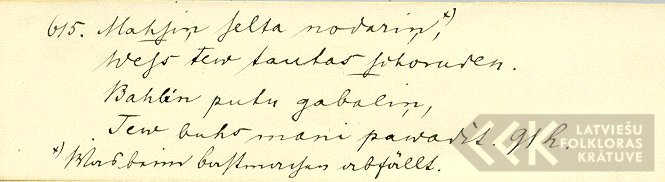 615. Mahsiņ selta nodariņ, *)
Wess tew tautas schoruden.
Bahliņ putu gabaliņ,
Tew buhs mani pawadit. 91 k.
*) Was beim bastmachen abfällt.
LATVIEŠU
FOLKLORAS
KRĀTUVE